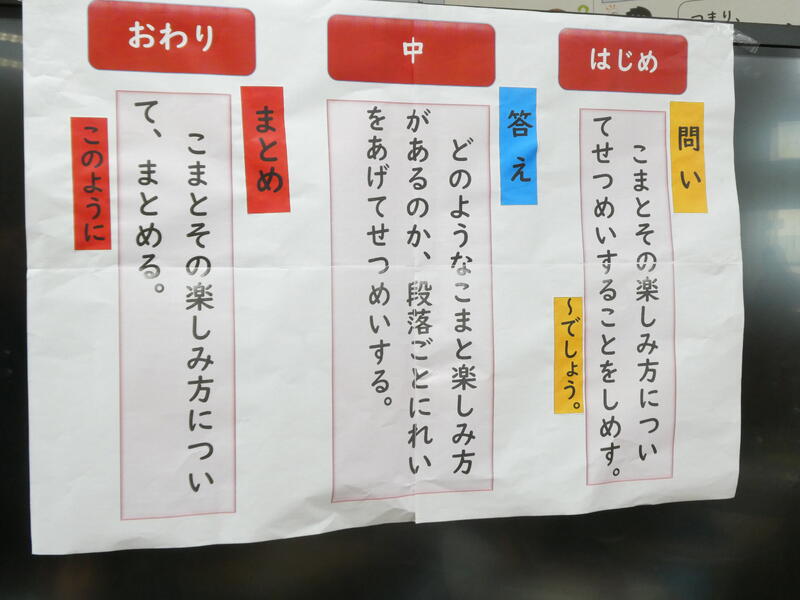 はじめ
問い
こまとその楽しみ方につい
てせつめいすることをしめす。
～でしょう。
中
答え
どのようなこまと楽しみ方
があるのか、段落ごとにれい
をあげてせつめいする。
おわり
まとめ
こまとその楽しみ方につい
て、まとめる。
このように
つまり、